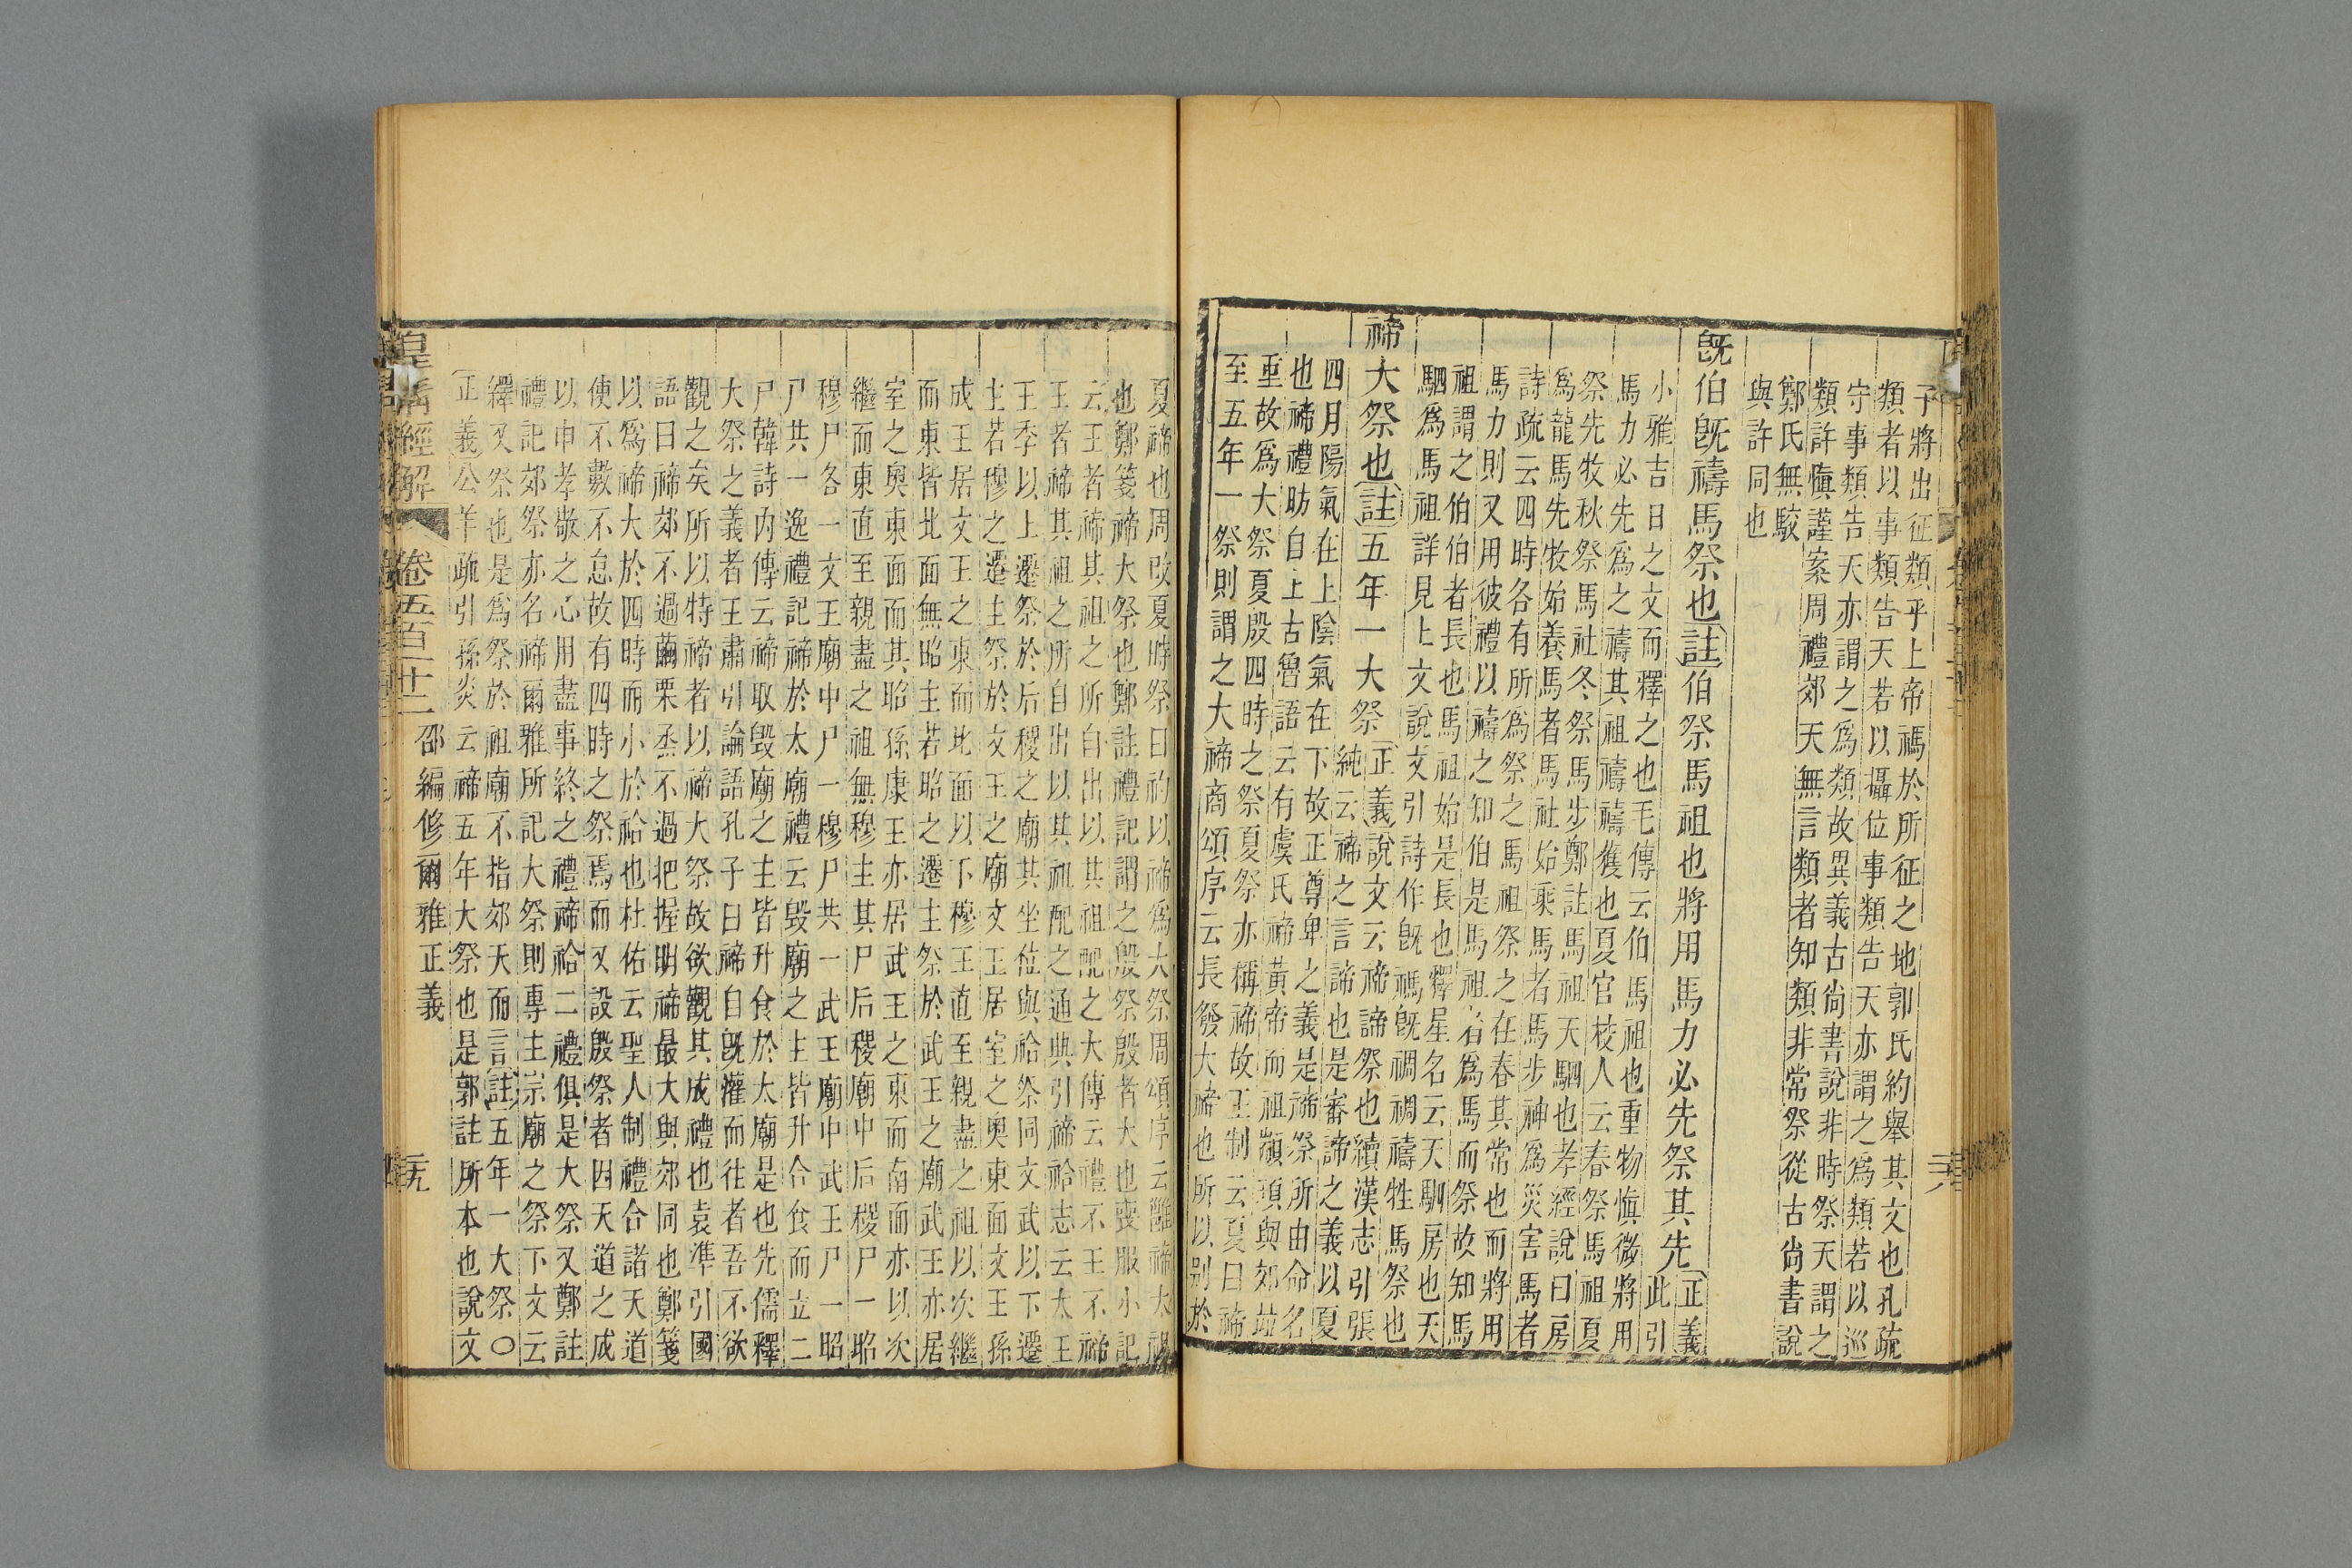 子將出征類乎上帝禡於所征之地郭氏約舉其文也孔疏
類者以事類告天若以攝位事類告天亦謂之爲類若以巡
守事類告天亦謂之爲類故異義古尚書說非時祭天謂之
類許愼謹案周禮郊天無言類者知類非常祭從古尚書說
鄭氏無駮
與許同也
旣伯旣禱馬祭也註伯祭馬祖也將用馬力必先祭其先正義
此引
小雅吉日之文而釋之也毛傳云伯馬祖也重物愼微將用
馬力必先爲之禱其祖禱禱獲也夏官校人云春祭馬祖夏
祭先牧秋祭馬社冬祭馬步鄭註馬祖天駟也孝經說曰房
爲龍馬先牧始養馬者馬社始乘馬者馬步神爲災害馬者
詩疏云四時各有所爲祭之馬祖祭之在春其常也而將用
馬力則又用彼禮以禱之知伯是馬祖者爲馬而祭故知馬
祖謂之伯伯者長也馬祖始是長也釋星名云天駟房也天
駟爲馬祖詳見上文說文引詩作旣禡旣禂禂禱牲馬祭也
禘大祭也註五年一大祭正義說文云禘諦祭也續漢志引張
純云禘之言諦也是審諦之義以夏
四月陽氣在上陰氣在下故正尊卑之義是禘祭所由命名
也禘禮昉自上古魯語云有虞氏禘黃帝而祖顓頊與郊竝
重故爲大祭夏殷四時之祭夏祭亦稱禘故王制云夏曰禘
至五年一祭則謂之大禘商頌序云長發大禘也所以别於
夏禘也周改夏時祭曰礿以禘爲大祭周頌序云雝禘太祖
也鄭箋禘大祭也鄭註禮記謂之殷祭殷者大也喪服小記
云王者禘其祖之所自出以其祖配之大傳云禮不王不禘
王者禘其祖之所自出以其祖配之通典引禘祫志云太王
王季以上遷祭於后稷之廟其坐位與祫祭同文武以下遷
主若穆之遷主祭於文王之廟文王居室之奧東面文王孫
成王居文王之東而北面以下穆王直至親盡之祖以次繼
而東皆北面無昭主若昭之遷主祭於武王之廟武王亦居
室之奧東面而其昭孫康王亦居武王之東而南面亦以次
繼而東直至親盡之祖無穆主其尸后稷廟中后稷尸一昭
穆尸各一文王廟中尸一穆尸共一武王廟中武王尸一昭
尸共一逸禮記禘於太廟禮云毀廟之主皆升合食而立二
尸韓詩內傳云禘取毀廟之主皆升食於太廟是也先儒釋
大祭之義者王肅引論語孔子曰禘自旣灌而往者吾不欲
觀之矣所以特禘者以禘大祭故欲觀其成禮也袁準引國
語曰禘郊不過繭栗烝不過把握明禘最大與郊同也鄭箋
以爲禘大於四時而小於祫也杜佑云聖人制禮合諸天道
使不數不怠故有四時之祭焉而又設殷祭者因天道之成
以申孝敬之心用盡事終之禮禘祫二禮俱是大祭又鄭註
禮記郊祭亦名禘爾雅所記大祭則專主宗廟之祭下文云
繹又祭也是爲祭於祖廟不指郊天而言註五年一大祭〇
正義公羊疏引孫炎云禘五年大祭也是郭註所本也說文
皇清經解 卷五百十二 邵編修爾雅正義 三九